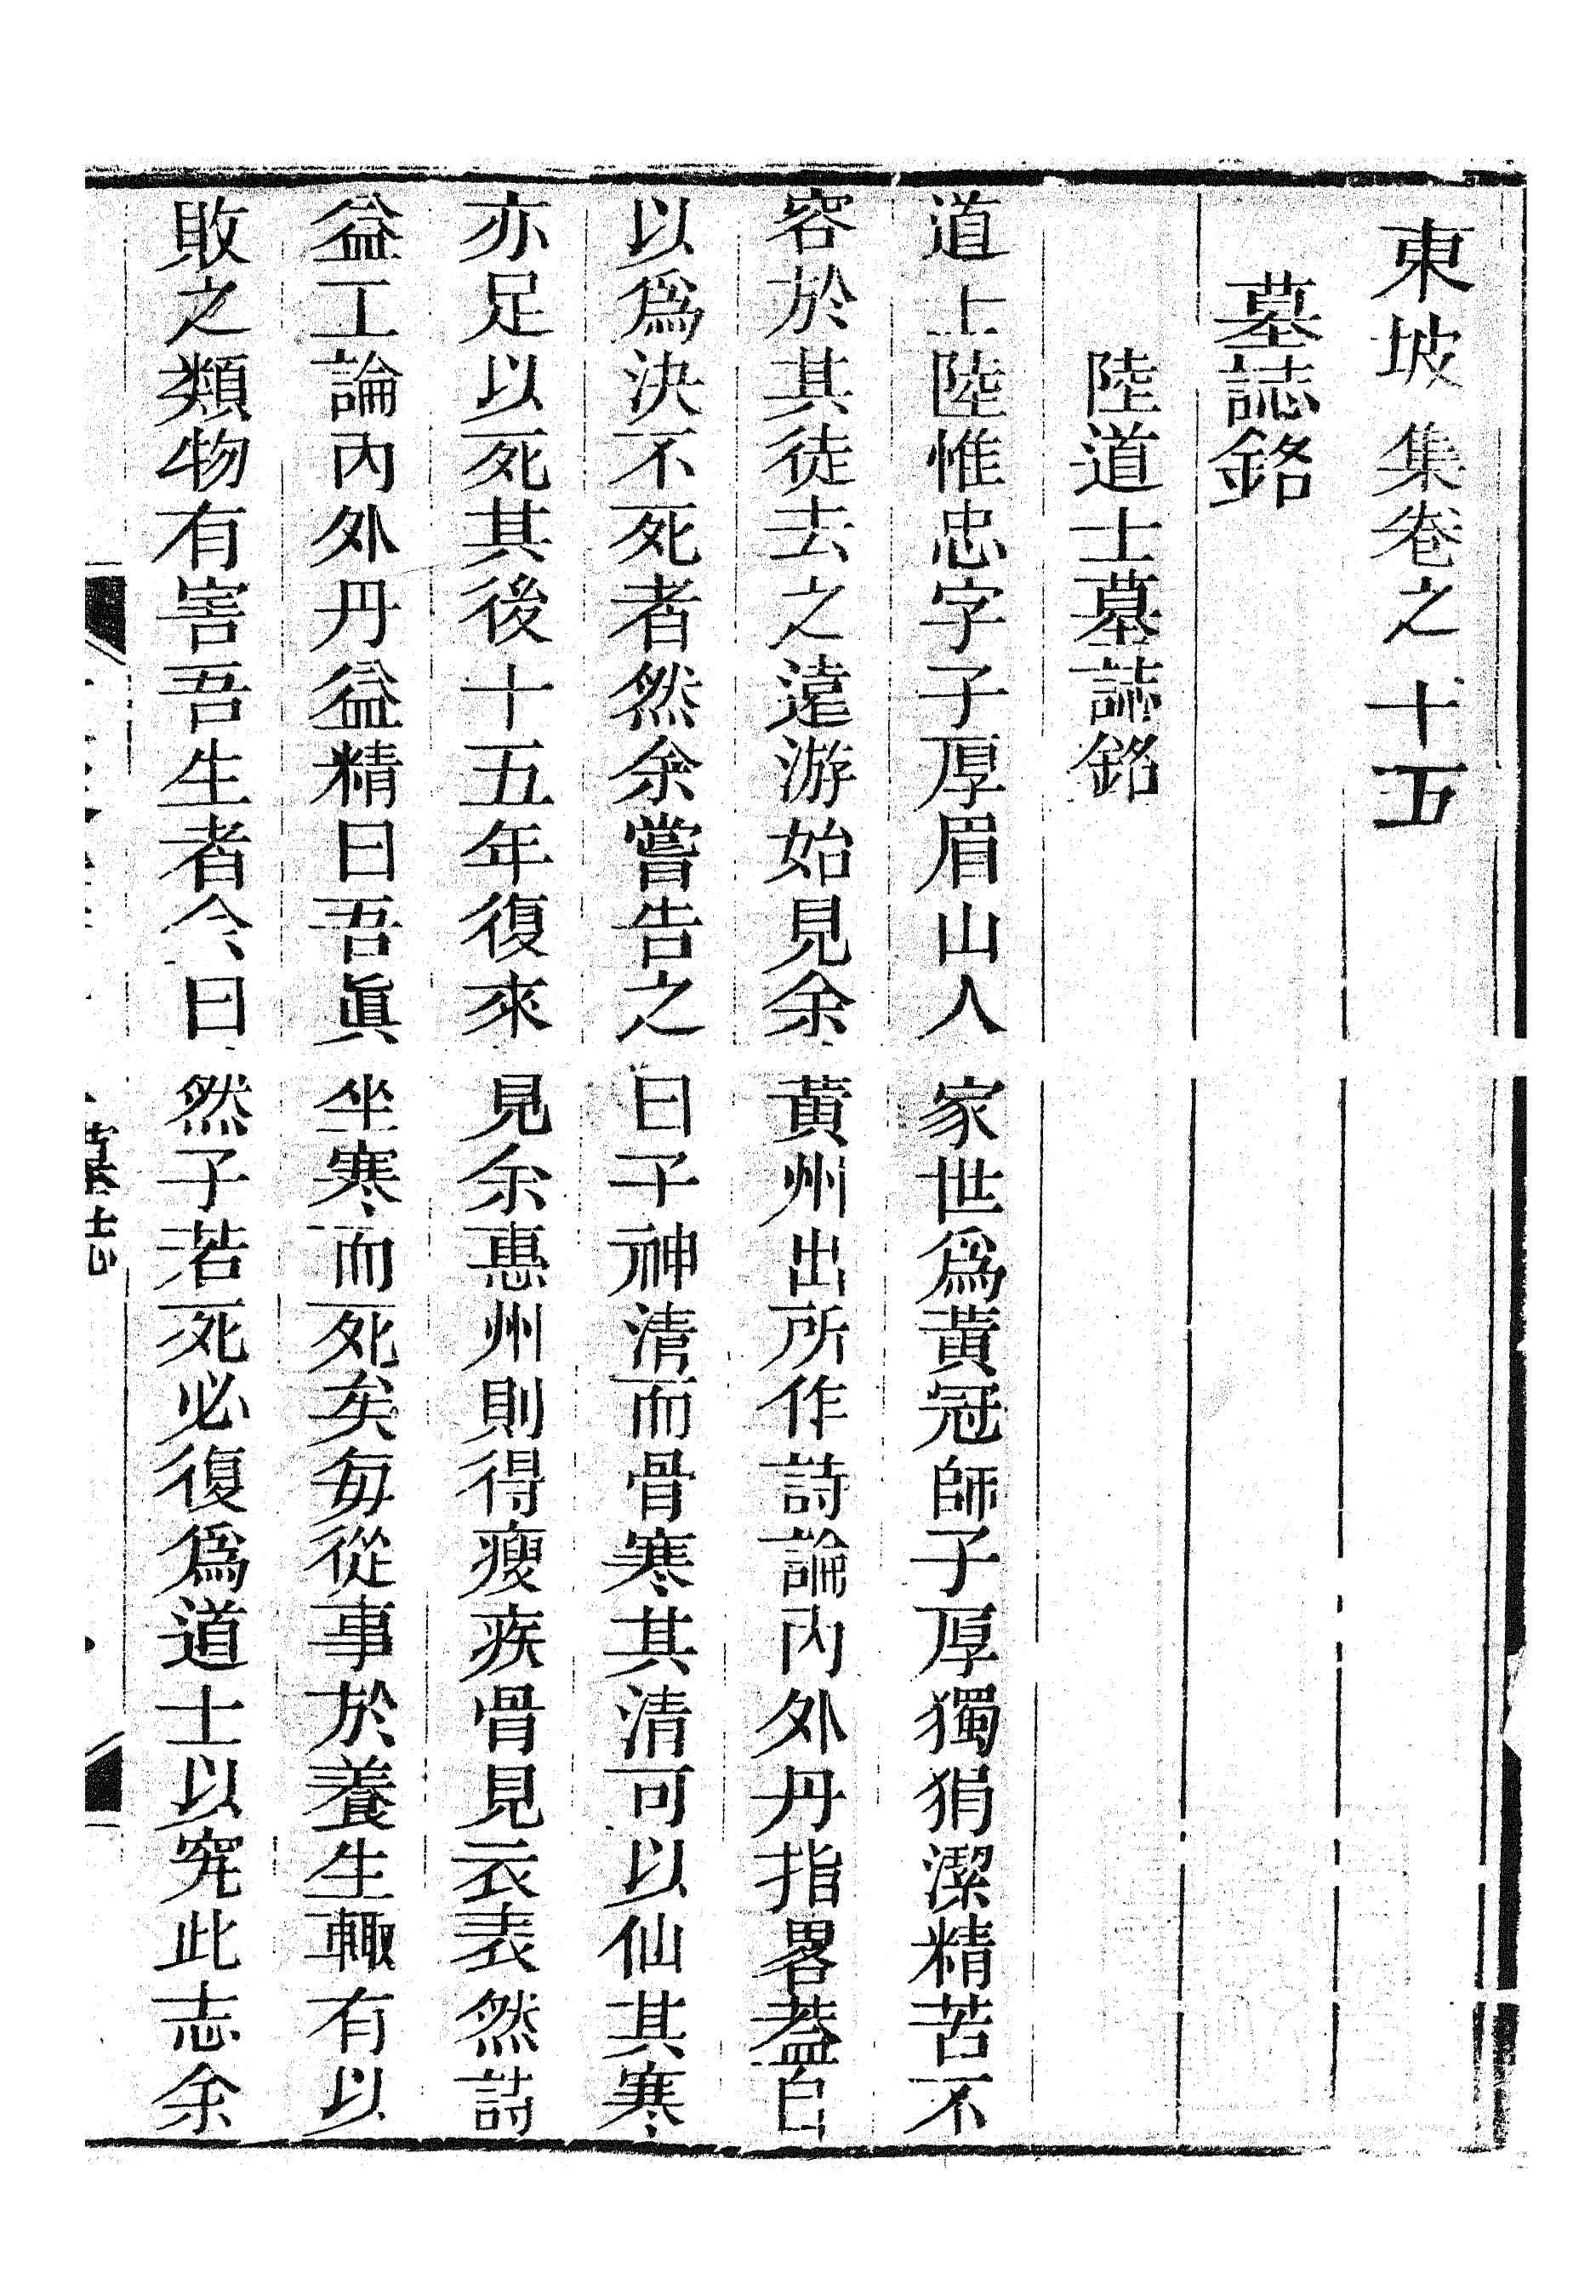 東坡集卷之十五
墓誌銘
陸道士墓誌銘
道士陸惟忠字子厚眉山人家世爲黃冠師子厚獨狷潔精苦不
容於其徒去之遠游始見余黃州出所作詩論內外丹指畧蓋自
以爲決不死者然余嘗告之曰子神清而骨寒其清可以仙其寒
亦足以死其後十五年復來見余惠州則得瘦疾骨見衣表然詩
益工論內外丹益精曰吾眞坐寒而死矣每從事於養生輙有以
敗之類物有害吾生者余曰然子若死必復爲道士以究此志余